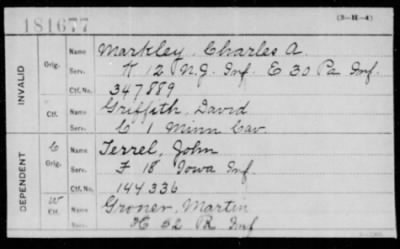 181677
(3-H-4)
INVALID
Orig.
Name Markley, Charles A.
Serv. K 12 N.J. Inf. E 30 Pa Inf.
Ctf. No. 347889
Ctf.
Name Griffith, David
Serv. C 1 Minn Cav.
DEPENDENT
C
Orig.
Name Terrel, John
Serv. F 18 Iowa Inf
Ctf. No. 144336
W
Ctf.
Name Groner, Martin
Serv. H 52 Pa Inf